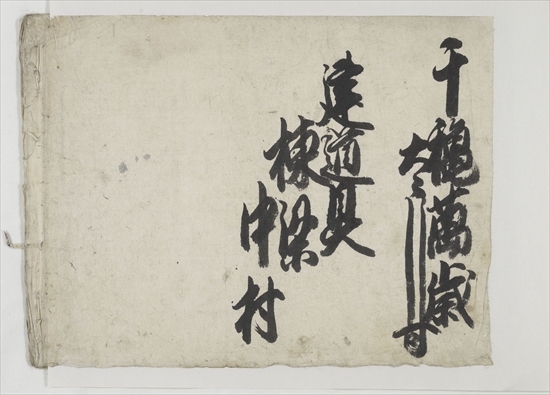 千穐萬歳
大々叶
建道具
棟梁
中村